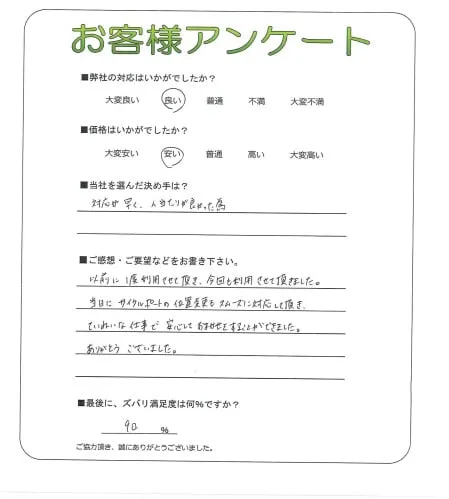 お客様アンケート
■弊社の対応はいかがでしたか?
大変良い 良い 普通 不満 大変不満
■価格はいかがでしたか?
大変安い 安い 普通 高い 大変高い
■当社を選んだ決め手は?
対応が早く、人当たりが良かった為
■ご感想・ご要望などをお書き下さい。
以前に1度利用させて頂き、今回も利用させて頂きました。
当日にサイクルポートの位置変更もスムーズに対応して頂き、
ていねいな仕事で安心しておまかせをすることができました。
ありがとうございました。
■最後に、ズバリ満足度は何%ですか?
90 %
ご協力頂き、誠にありがとうございました。